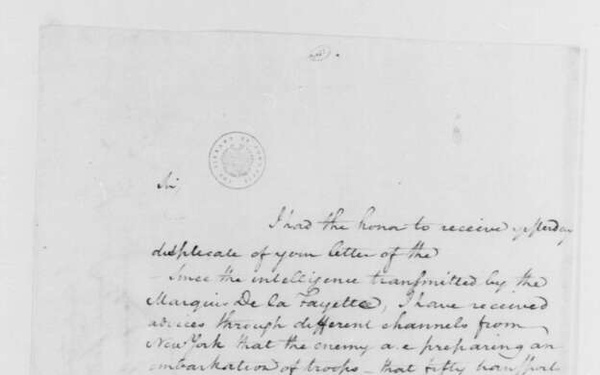 Sir,
I had the honor to receive yesterday
duplicate of your letter of the
- Since the intelligence transmitted by the
Marquis De la Fayette, I have received
advices through different channels from
New York that the enemy a e preparing an
embarkation of troops - that fifty transport